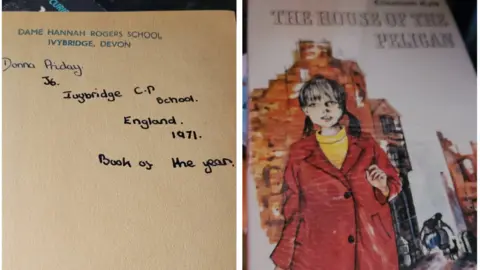 DAME HANNAH ROGERS SCHOOL
IVYBRIDGE, DEVON
Donna Friday
J6.
Ivybridge C.P
School.
England.
1971.
Book of the year.
THE HOUSE OF THE
PELICAN